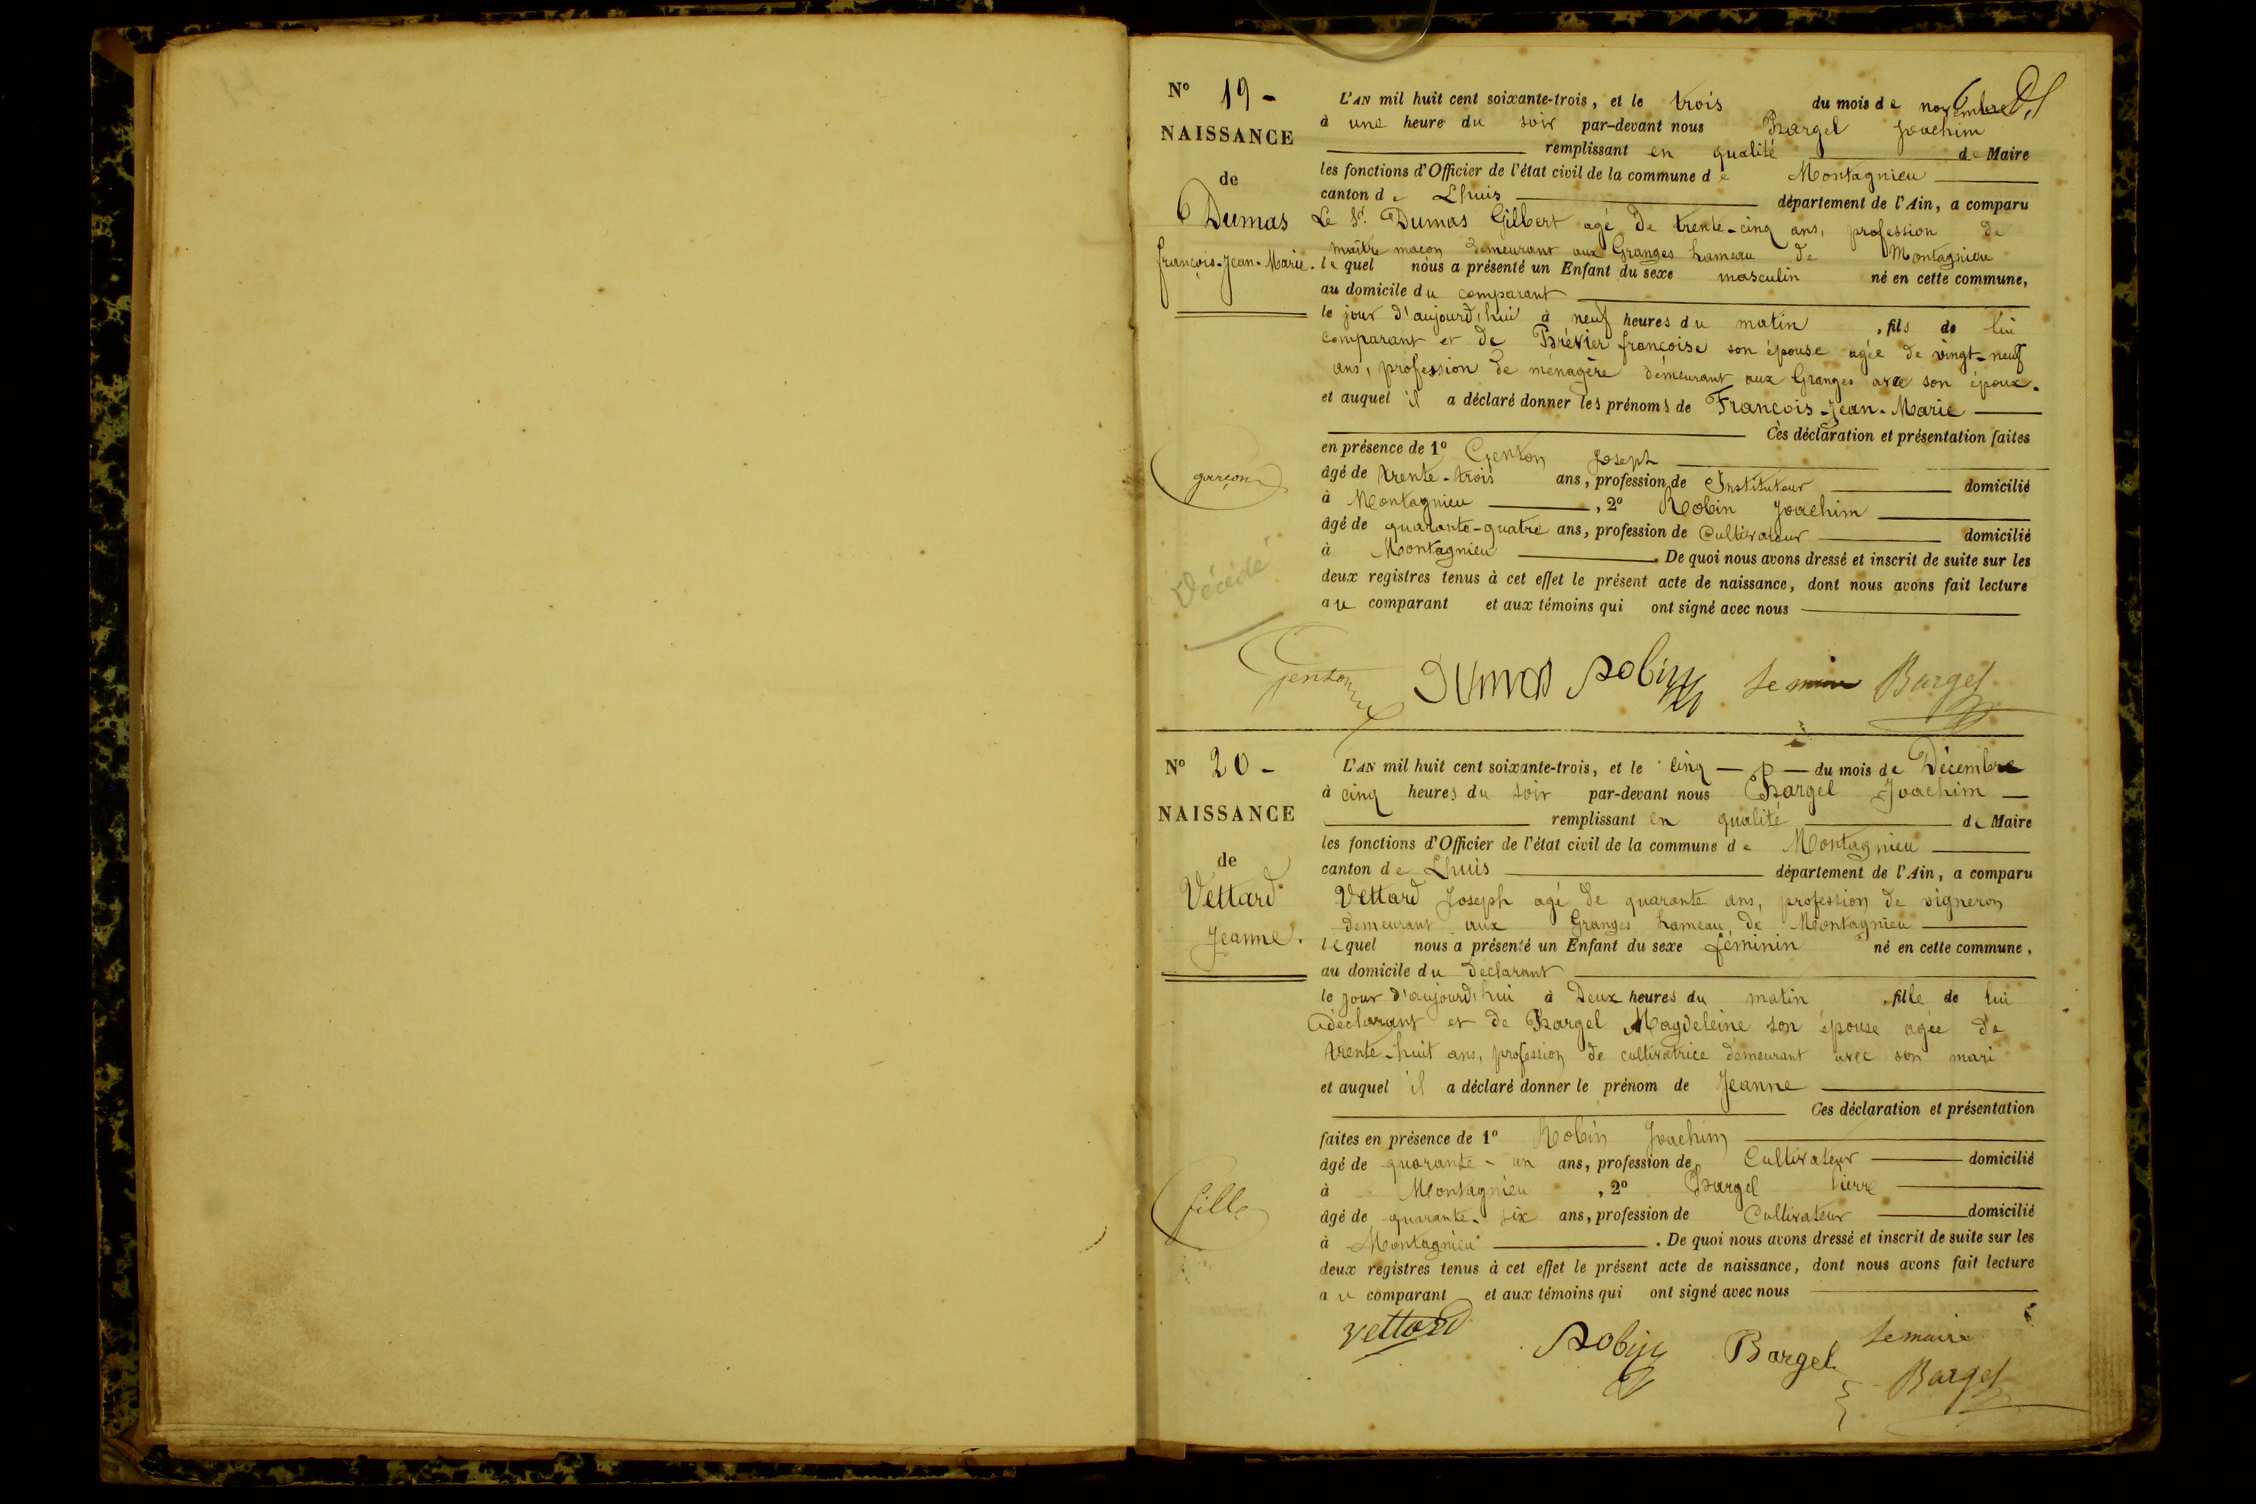 Nº 19 -
NAISSANCE
de
Dumas
françois-Jean-Marie.
garçon
Décédé
L'AN mil huit cent soixante-trois, et le trois du mois de novembre
à une heure du soir par-devant nous Bargel Joachim
remplissant en qualité de Maire
les fonctions d'Officier de l'état civil de la commune de Montagnieu
canton de Lhuis département de l'Ain, a comparu
Le Sr. Dumas Gilbert agé de trente-cinq ans, profession de
maître maçon demeurant aux Granges hameau de Montagnieu
lequel nous a présenté un Enfant du sexe masculin né en cette commune,
au domicile du comparant
le jour d'aujourd'hui à neuf heures du matin, fils de lui
comparant et de Brévier françoise son épouse agée de vingt-neuf
ans, profession de ménagère demeurant aux Granges avec son époux.
et auquel il a déclaré donner les prénoms de François-Jean-Marie
Ces déclaration et présentation faites
en présence de 1º Genton Joseph
âgé de trente-trois ans, profession de Instituteur domicilié
à Montagnieu, 2º Robin Joachim
âgé de quarante-quatre ans, profession de Cultivateur domicilié
à Montagnieu. De quoi nous avons dressé et inscrit de suite sur les
deux registres tenus à cet effet le présent acte de naissance, dont nous avons fait lecture
au comparant et aux témoins qui ont signé avec nous
Genton Dumas Robin Le maire Bargel
Nº 20 -
NAISSANCE
de
Vettard
Jeanne.
fille
L'AN mil huit cent soixante-trois, et le cinq du mois de Décembre
à cinq heures du soir par-devant nous Bargel Joachim
remplissant en qualité de Maire
les fonctions d'Officier de l'état civil de la commune de Montagnieu
canton de Lhuis département de l'Ain, a comparu
Vettard Joseph agé de quarante ans, profession de vigneron
demeurant aux Granges hameau de Montagnieu
lequel nous a présenté un Enfant du sexe féminin né en cette commune,
au domicile du declarant
le jour d'aujourd'hui à Deux heures du matin, fille de lui
déclarant et de Bargel Magdeleine son épouse agée de
trente-huit ans, profession de cultivatrice demeurant avec son mari
et auquel il a déclaré donner le prénom de Jeanne
Ces déclaration et présentation
faites en présence de 1º Robin Joachim
âgé de quarante-un ans, profession de Cultivateur domicilié
à Montagnieu, 2º Bargel Pierre
âgé de quarante-six ans, profession de Cultivateur domicilié
à Montagnieu. De quoi nous avons dressé et inscrit de suite sur les
deux registres tenus à cet effet le présent acte de naissance, dont nous avons fait lecture
au comparant et aux témoins qui ont signé avec nous
Vettard Robin Bargel Le maire
Bargel